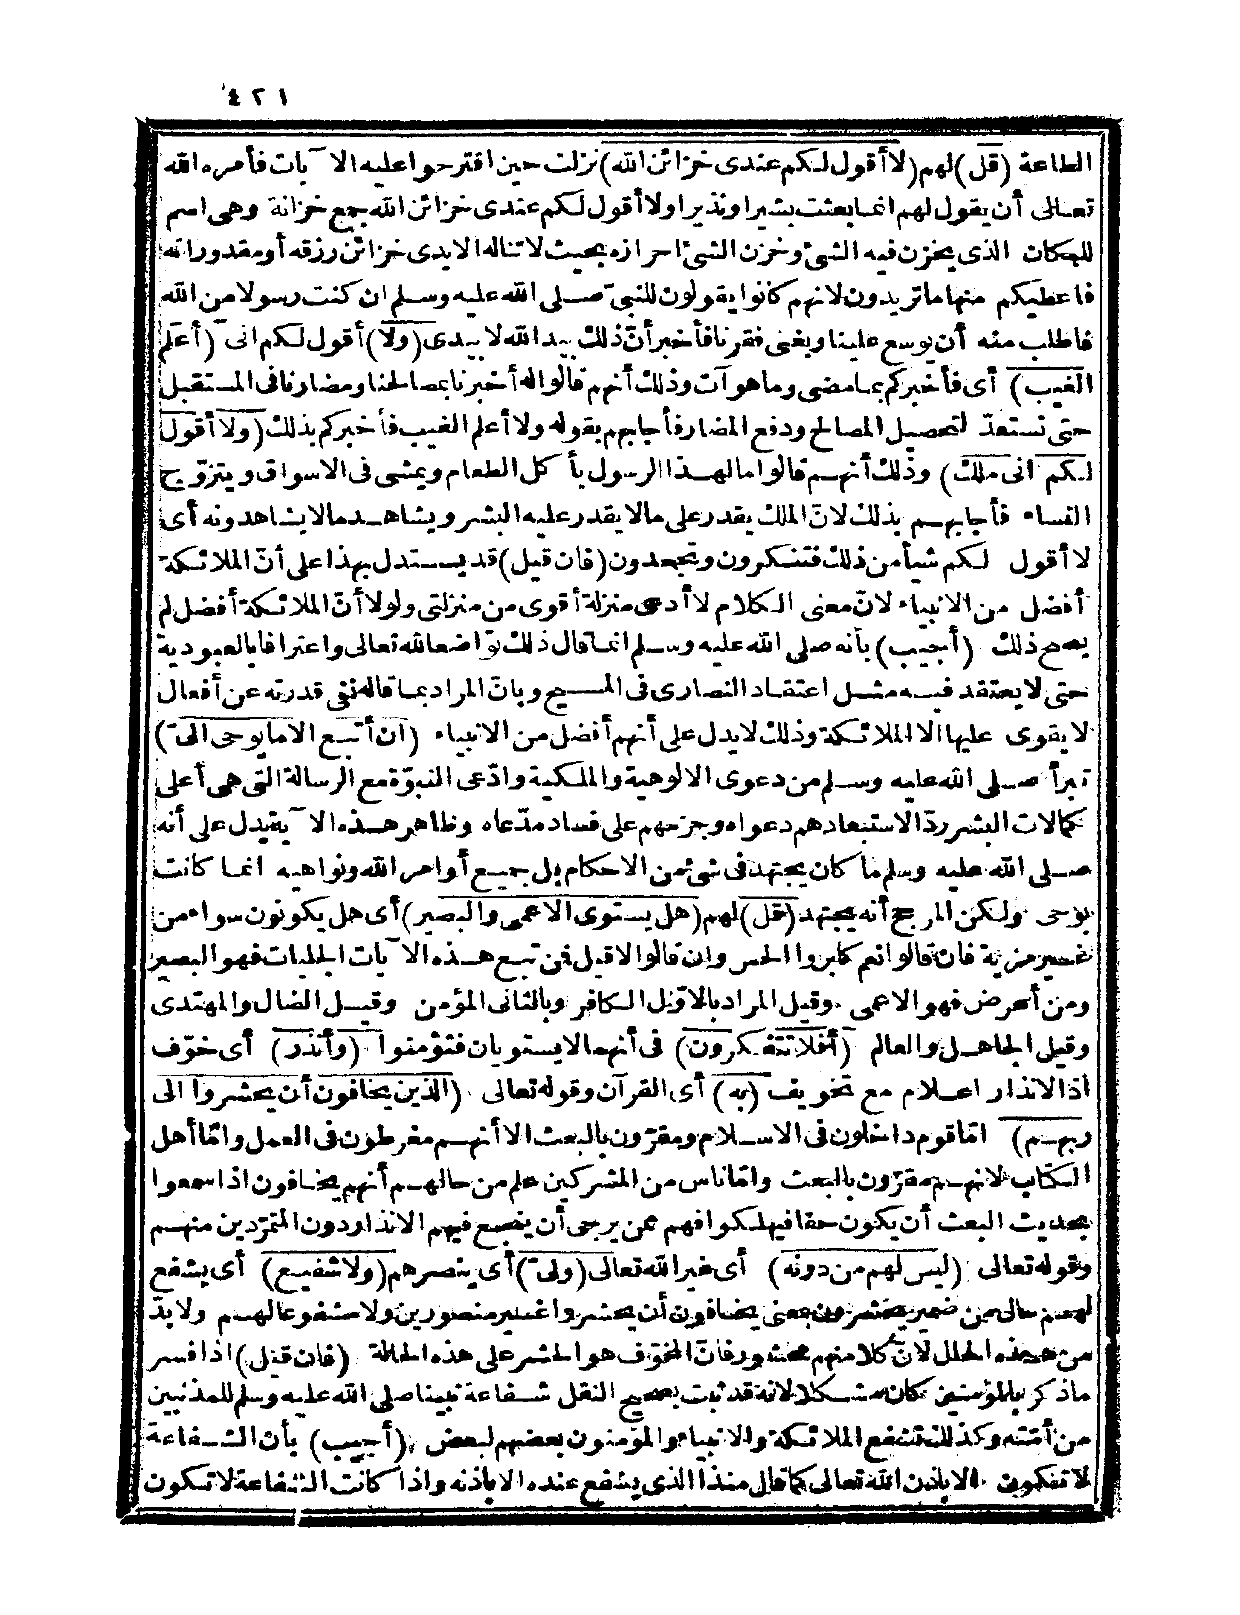 ٤٢١
الطاعة (قل) لهم (لا أقول لكم عندى خزائن الله) نزلت حين اقترحوا عليه الآيات فأمره الله
تعالى أن يقول لهم انما بعثت بشيرا ونذيرا ولا أقول لكم عندى خزائن الله جمع خزانة وهى اسم
للمكان الذى يخزن فيه الشئ وخزن الشئ احرازه بحيث لا تناله الايدى خزائن رزقه أو مقدوراته
فاعطيكم منها ما تريدون لانهم كانوا يقولون للنبىّ صلى الله عليه وسلم ان كنت رسولا من الله
فاطلب منه أن يوسع علينا ويغنى فقرنا فأخبر أنّ ذلك بيد الله لا بيدى (ولا) أقول لكم انى (أعلم
الغيب) أى فأخبركم بما مضى وما هو آت وذلك أنهم قالوا له أخبرنا بمصالحنا ومضارنا فى المستقبل
حتى نستعدّ لتحصيل المصالح ودفع المضار فأجابهم بقوله ولا أعلم الغيب فأخبركم بذلك (ولا أقول
لكم انى ملك) وذلك أنهم قالوا ما لهذا الرسول يأكل الطعام ويمشى فى الاسواق ويتزوّج
النساء فأجابهم بذلك لانّ الملك يقدر على ما لا يقدر عليه البشر ويشاهد ما لا يشاهدونه أى
لا أقول لكم شيأ من ذلك فتنكرون وتجحدون (فان قيل) قد يستدل بهذا على أنّ الملائكة
أفضل من الانبياء لانّ معنى الكلام لا أدعى منزلة أقوى من منزلتى ولولا أنّ الملائكة أفضل لم
يصح ذلك (أجيب) بأنه صلى الله عليه وسلم انما قال ذلك تواضعا لله تعالى واعترافا بالعبودية
حتى لا يعتقد فيه مثل اعتقاد النصارى فى المسيح وبانّ المراد بما قاله نفى قدرته عن أفعال
لا يقوى عليها الا الملائكة وذلك لا يدل على أنهم أفضل من الانبياء (ان أتبع الا ما يوحى الىّ)
تبرأ صلى الله عليه وسلم من دعوى الالوهية والملكية وادّعى النبوّة مع الرسالة التى هى أعلى
كمالات البشر ردّا لاستبعادهم دعواه وجزمهم على فساد مدّعاه وظاهر هذه الآية يدل على أنه
صلى الله عليه وسلم ما كان يجتهد فى شئ من الاحكام بل جميع أوامر الله ونواهيه انما كانت
بوحى ولكن المرجح أنه يجتهد (قل) لهم (هل يستوى الاعمى والبصير) أى هل يكونون سواء من
غير مزية فان قالوا نعم كابروا الحس وان قالوا لا قيل فمن تبع هذه الآيات الجليات فهو البصير
ومن أعرض فهو الاعمى وقيل المراد بالاوّل الكافر وبالثانى المؤمن وقيل الضال والمهتدى
وقيل الجاهل والعالم (أفلا تتفكرون) فى أنهما لا يستويان فتؤمنوا (وأنذر) أى خوّف
اذ الانذار اعلام مع تخويف (به) أى القرآن وقوله تعالى (الذين يخافون أن يحشروا الى
ربهم) امّا قوم داخلون فى الاسلام ومقرّون بالبعث الا أنهم مفرطون فى العمل وامّا أهل
الكتاب لانهم مقرّون بالبعث وامّا ناس من المشركين علم من حالهم أنهم يخافون اذا سمعوا
بحديث البعث أن يكون حقا فيهلكوا فهم ممن يرجى أن ينجع فيهم الانذار دون المتمرّدين منهم
وقوله تعالى (ليس لهم من دونه) أى غير الله تعالى (ولىّ) أى ينصرهم (ولا شفيع) أى يشفع
لهم حال من ضمير يحشرون بمعنى يخافون أن يحشروا غير منصورين ولا مشفوعا لهم ولا بدّ
من هذه الحال لانّ كلا منهم محشور فانّ المخوّف هو الحشر على هذه الحالة (فان قيل) اذا فسر
ما ذكر بالمؤمنين كان مشكلا لانه قد ثبت بصحيح النقل شفاعة نبينا صلى الله عليه وسلم للمذنبين
من أمّته وكذلك تشفع الملائكة والانبياء والمؤمنون بعضهم لبعض (أجيب) بأن الشفاعة
لا تكون الا باذن الله تعالى كما قال من ذا الذى يشفع عنده الا باذنه واذا كانت الشفاعة لا تكون